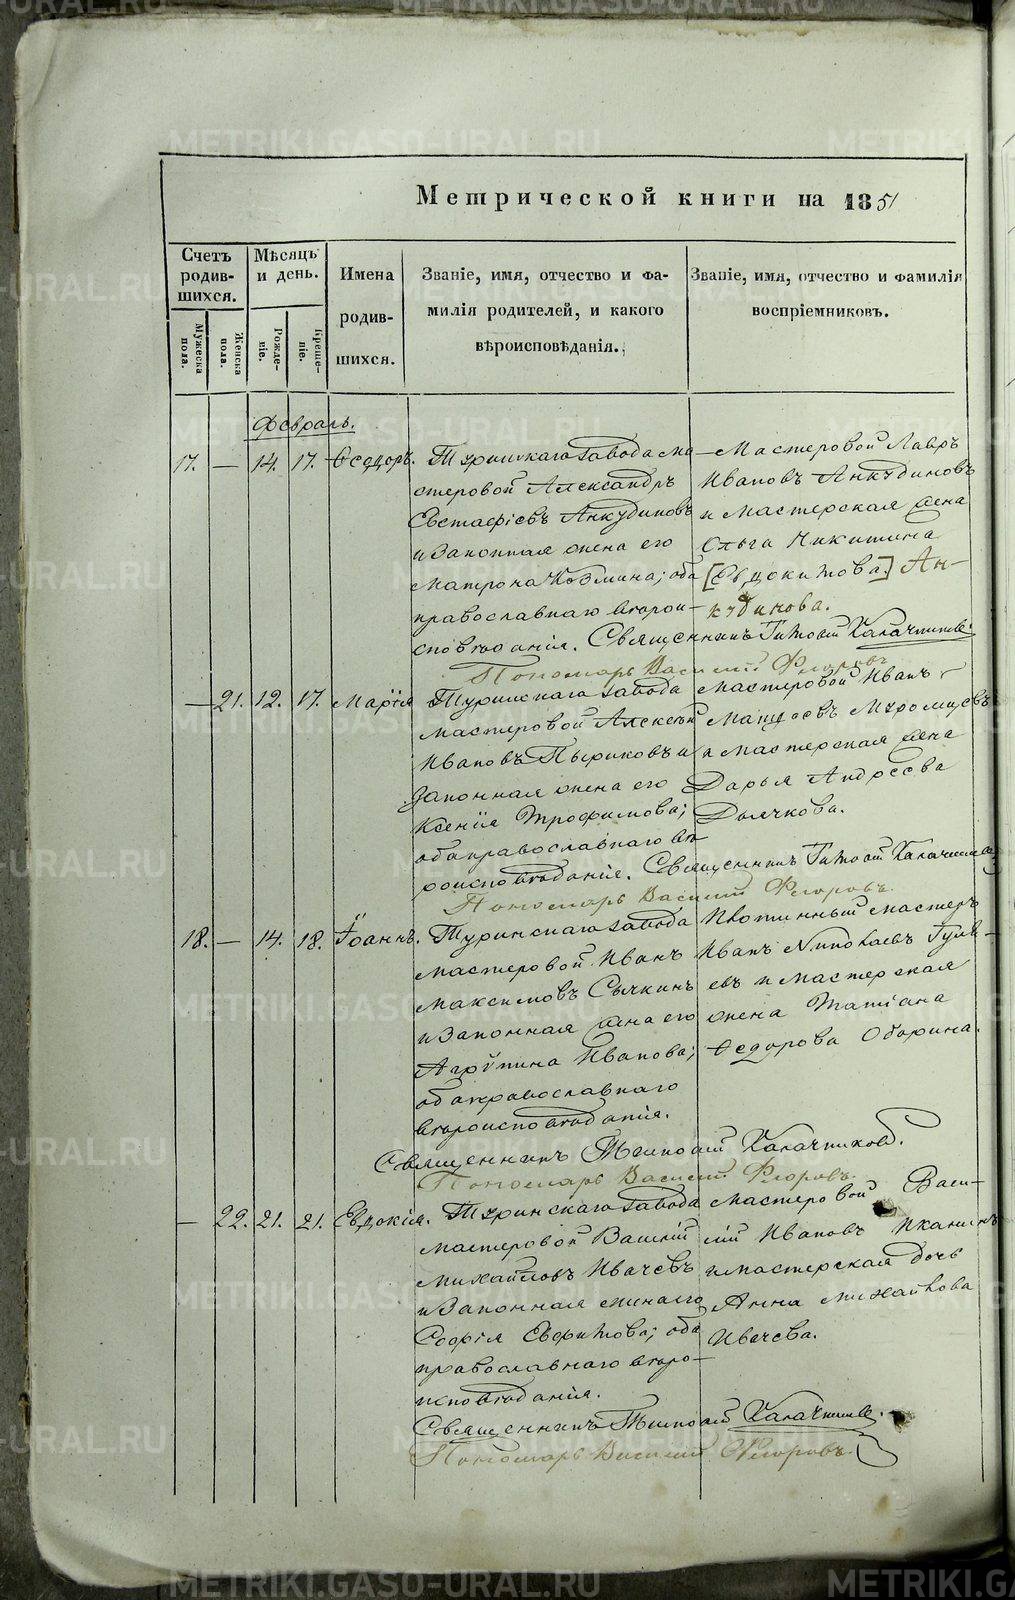 Метрической книги на 1851
Счетъ родив-шихся.
Мѣсяцъ и день.
Имена родив-шихся.
Званіе, имя, отчество и фа-милія родителей, и какого вѣроисповѣданія.
Званіе, имя, отчество и фамилія воспріемниковъ.
Мужеска пола.
Женска пола.
Рожде-ніе.
Креще-ніе.
Февраль.
17. — 14. 17. Ѳеодоръ.
Туринскаго завода ма-
стеровой Александръ
Евстафіевъ Анкудиновъ
и законная жена его
Матрона Козмина; оба
православнаго вѣрои-
сповѣданія.
Мастеровой Лавръ
Ивановъ Анкудиновъ
и мастерская жена
Ольга Никитина
[Евдокимова.] Ан-
кудинова.
Священникъ Тимоѳей Калачниковъ.
Пономарь Василій Флоровъ.
— 21. 12. 17. Марія
Туринскаго завода
мастеровой Алексѣй
Ивановъ Пыриковъ и
законная жена его
Ксенія Трофимова;
оба православнаго вѣ-
роисповѣданія.
Мастеровой Иванъ
Матѳеевъ Муромцевъ
и мастерская жена
Дарья Андреева
Дьячкова.
Священникъ Тимоѳей Калачниковъ
Пономарь Василій Флоровъ.
18. — 14. 18. Іоаннъ.
Туринскаго завода
мастеровой Иванъ
Максимовъ Сычкинъ
и законная жена его
Агрипина Иванова;
оба православнаго
вѣроисповѣданія.
Плотинный мастеръ
Иванъ Николаевъ Гуля-
евъ и мастерская
жена Татіана
Ѳедорова Оборина.
Священникъ Тимоѳей Калачниковъ.
Пономарь Василій Флоровъ.
— 22. 21. 21. Евдокія.
Туринскаго завода
мастеровой Василій
Михайловъ Ивачевъ
и законная жена его
Софія Ефимова; оба
православнаго вѣро-
исповѣданія.
Мастеровой Васи-
лій Ивановъ Иканинъ
и мастерская дочь
Анна Михайлова
Ивачева.
Священникъ Тимоѳей Калачниковъ.
Пономарь Василій Флоровъ.
METRIKI.GASO-URAL.RU